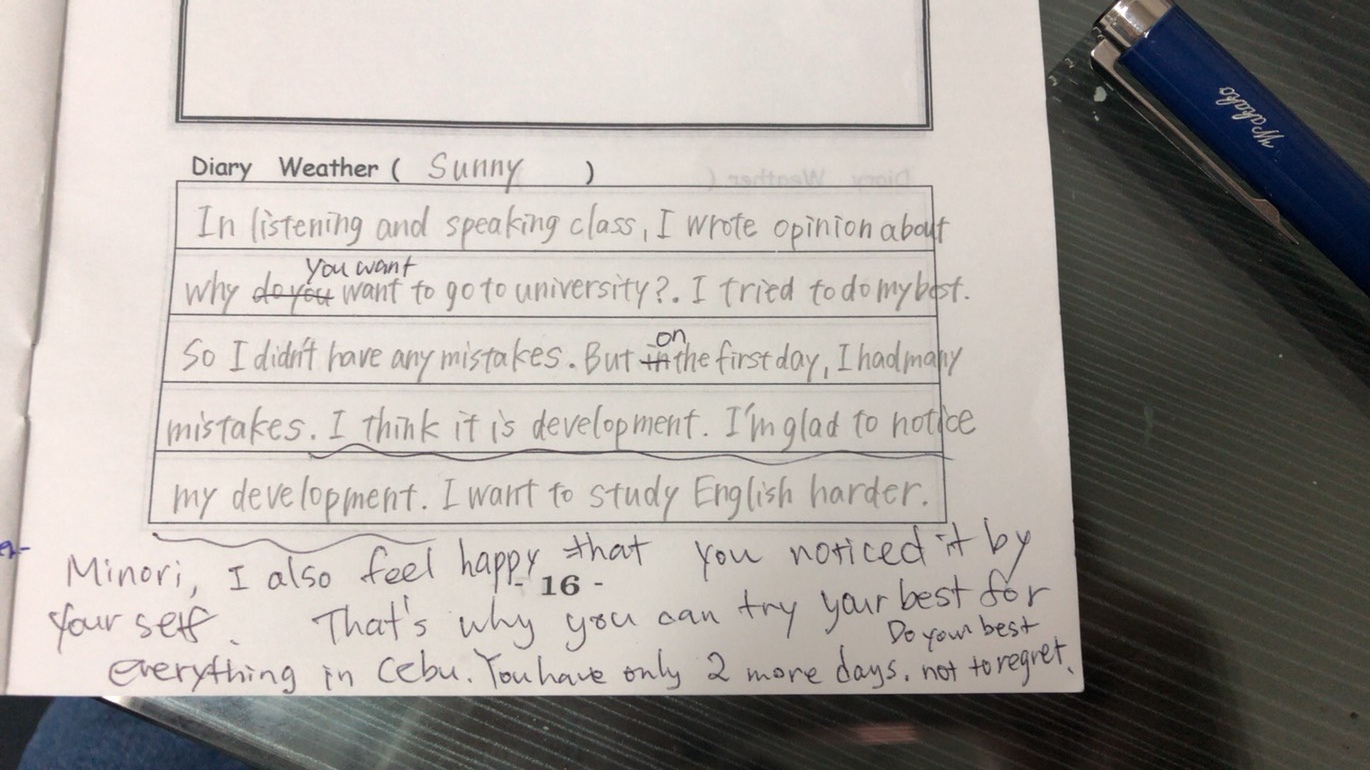 Diary Weather ( Sunny )
In listening and speaking class, I wrote opinion about
you want
why do you want to go to university?. I tried to do my best.
on
So I didn't have any mistakes. But in the first day, I had many
mistakes. I think it is development. I'm glad to notice
my development. I want to study English harder.
Minori, I also feel happy that you noticed it by
- 16 -
your self. That's why you can try your best for
Do your best
everything in Cebu. You have only 2 more days. not to regret.
Wakako